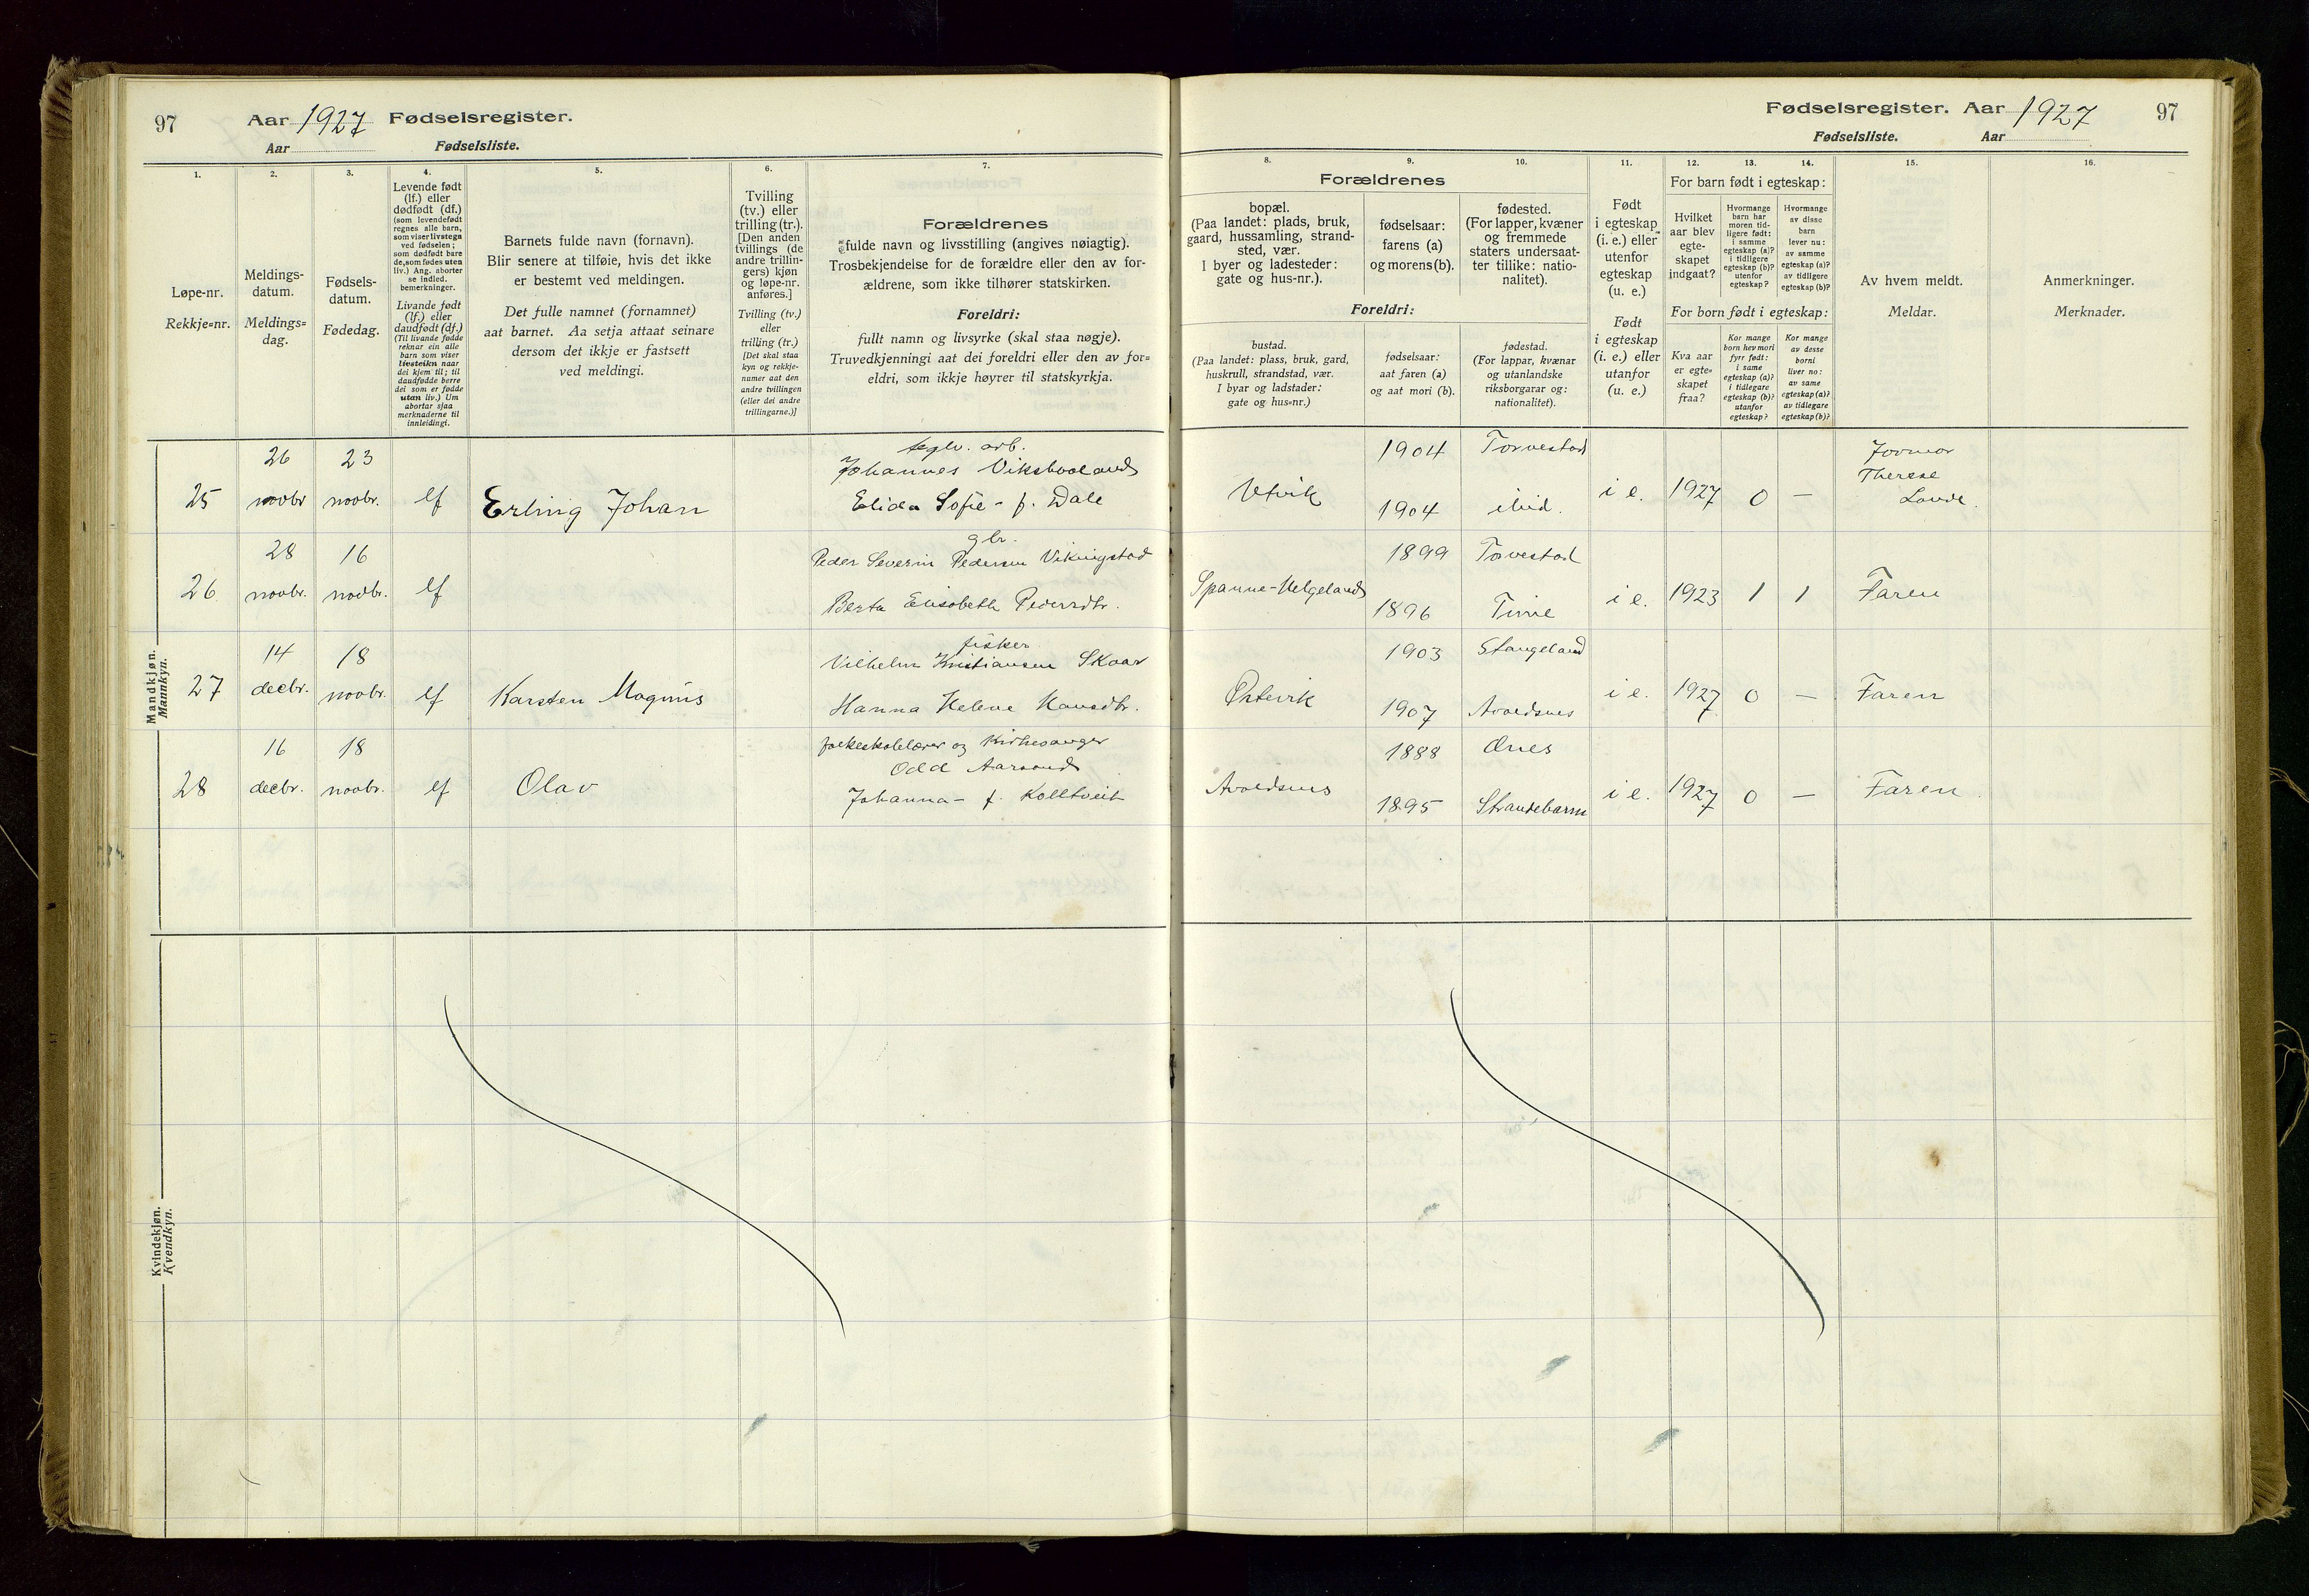 97 Aar 1927 Fødselsregister.
Aar Fødselsliste.
1.
Løpe-nr.
Rekkje=nr.
2.
Meldings-
datum.
Meldings=
dag.
3.
Fødsels-
datum.
Fødedag.
4.
Levende født
(lf.) eller
dødfødt (df.)
(som levendefødt
regnes alle barn,
som viser livstegn
ved fødselen;
som dødfødt bare
de, som fødes uten
liv.) Ang. aborter
se indled.
bemerkninger.
Livande født
(lf.) eller
daudfødt (df.)
(Til livande fødde
reknar ein alle
barn som viser
livsteikn naar
dei kjem til; til
daudfødde berre
dei som er fødde
utan liv.) Um
abortar sjaa
merknaderne til
innleidingi.
5.
Barnets fulde navn (fornavn).
Blir senere at tilføie, hvis det ikke
er bestemt ved meldingen.
Det fulle namnet (fornamnet)
aat barnet. Aa setja attaat seinare
dersom det ikkje er fastsett
ved meldingi.
6.
Tvilling
(tv.) eller
trilling (tr.).
[Den anden
tvillings (de
andre trillin-
gers) kjøn
og løpe-nr.
anføres.]
Tvilling (tv.)
eller
trilling (tr.)
[Det skal staa
kyn og rekkje-
numer aat den
andre tvillingen
(eller dei andre
trillingarne.)]
7.
Forældrenes
fulde navn og livsstilling (angives nøiagtig).
Trosbekjendelse for de forældre eller den av for-
ældrene, som ikke tilhører statskirken.
Foreldri:
fullt namn og livsyrke (skal staa nøgje).
Truvedkjenningi aat dei foreldri eller den av for=
eldri, som ikkje høyrer til statskyrkja.
Mandkjøn.
Mannkyn.
25 26 novbr 23 novbr. lf Erling Johan
Johannes Viksbvoland
Elida Sofie - f. Dale
26 28 novbr. 16 novbr. lf
gbr.
Peder Severin Pedersen Vikingstad
Berta Elisabeth Pedersdtr.
27 14 decbr. 18 novbr. lf Karsten Magnus
fisker
Vilhelm Kristiansen Skaar
Hanna Helene Hansdtr.
28 16 decbr. 18 novbr. lf Olav
folkeskolelærer og Kirkesanger
Odd Aarsand
Johanna - f. Kolltveit
Kvindekjøn.
Kvendkyn.
Fødselsregister. Aar 1927 97
Fødselsliste. Aar
Forældrenes
8.
bopæl.
(Paa landet: plads, bruk,
gaard, hussamling, strand-
sted, vær.
I byer og ladesteder:
gate og hus-nr.).
9.
fødselsaar:
farens (a)
og morens (b).
10.
fødested.
(For lapper, kvæner
og fremmede
staters undersaat-
ter tillike: natio-
nalitet).
Foreldri:
bustad.
(Paa landet: plass, bruk, gard,
huskrull, strandstad, vær.
I byar og ladstader:
gate og hus=nr.)
fødselsaar:
aat faren (a)
og aat mori (b).
fødestad.
(For lappar, kvænar
og utanlandske
riksborgarar og:
nationalitet).
11.
Født
i egteskap
(i. e.) eller
utenfor
egteskap
(u. e.)
Født
i egteskap
(i. e.) eller
utanfor
(u. e.)
For barn født i egteskap:
12.
Hvilket
aar blev
egte-
skapet
indgaat?
13.
Hvormange
barn har
moren tid-
ligere født:
i samme
egteskap (a)?
i tidligere
egteskap (b)?
utenfor
egteskap?
14.
Hvormange
av disse
barn
lever nu:
av samme
egteskap (a)?
av tidligere
egteskap (b)?
For born født i egteskap:
Kva aar
er egte=
skapet
fraa?
Kor mange
born hev mori
fyrr født:
i same
egteskap (a)?
i tidlegare
egteskap (b)?
utanfor
egteskap?
Kor mange
av desse
borni
liver no:
av same
egteskap (a)?
av tidlegare
egteskap (b)?
15.
Av hvem meldt.
Meldar.
16.
Anmerkninger.
Merknader.
Utvik 1904 Torvestad
1904 ibid. i e. 1927 0 — Jormor
Therese
Lande.
Spanne-Helgeland 1899 Torvestad
1896 Time i e. 1923 1 1 Faren
Østevik 1903 Stangeland
1907 Avaldsnes i e. 1927 0 — Faren
Avaldsnes 1888 Ænes
1895 Strandebarm i e. 1927 0 — Faren